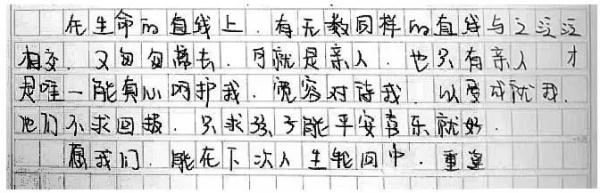 在生命的直线上,有无数同样的直线与之远远
相交,又匆匆离去,可就是亲人,也只有亲人才
是唯一能真心呵护我,宽容对待我,以爱成就我,
他们不求回报,只求孩子能平安喜乐就好.
愿我们,能在下次人生轮回中,重逢